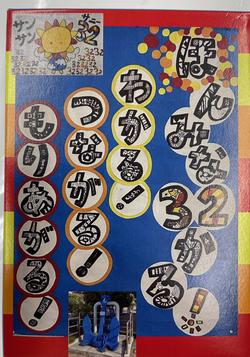 ほんみな
32かる!
わかる!
つながる!
もりあがる!
サンサン
サニー
32